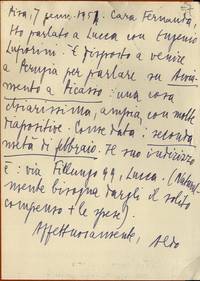 Pisa, 7 genn. 1957. Cara Fernanda,
Ho parlato a Lucca con Eugenio
Luporini. È disposto a venire
a Perugia per parlare su
mento a Picasso: una cosa
chiarissima, ampia, con molte
diapositive. Come data: seconda
metà di febbraio. Il suo indirizzo
è: via Fillungo 99, Lucca. (Natural-
mente bisogna dargli il solito
compenso + le spese).
Affettuosamente, Aldo